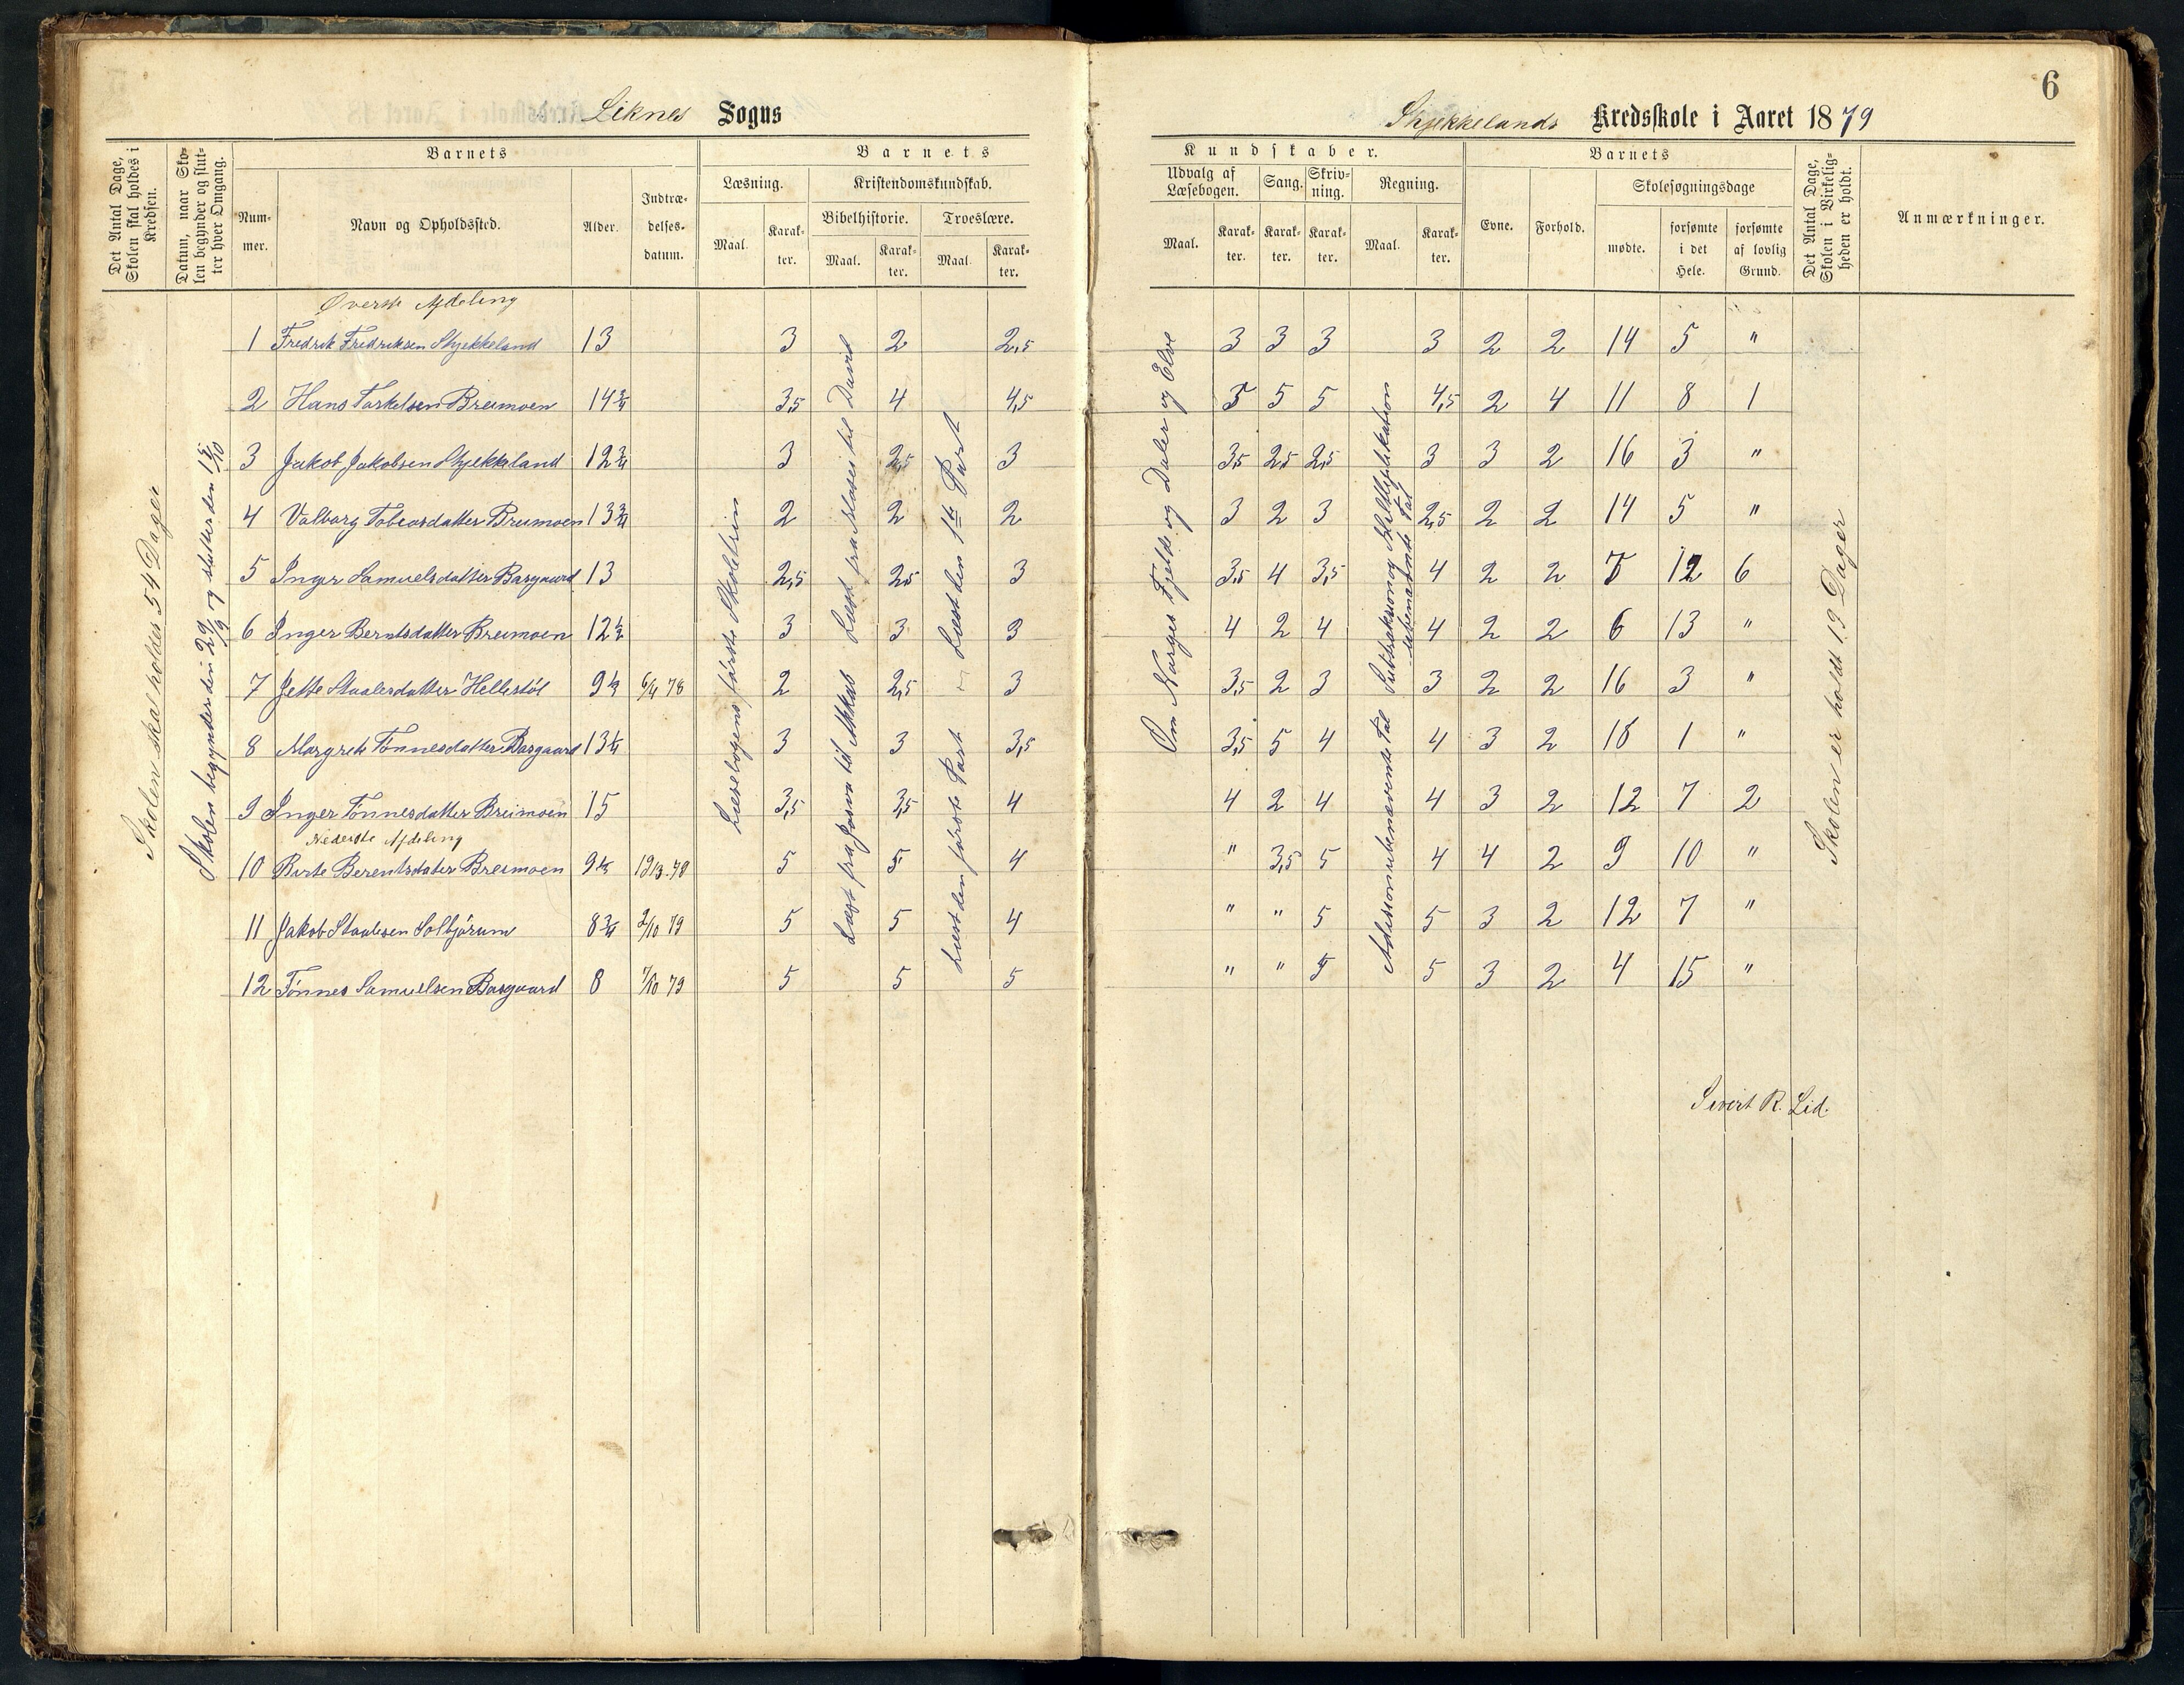 Liknes Sogns
Skjekkelands Kredsskole i Aaret 1879
6
Det Antal Dage, Skolen skal holdes i Kredsen.
Datum, naar Skolen begynder og slutter hver Omgang.
Barnets
Nummer.
Navn og Opholdssted.
Alder.
Indtrædelsesdatum.
Barnets
Læsning.
Maal.
Karakter.
Kristendomskundskab.
Bibelhistorie.
Maal.
Karakter.
Troeslære.
Maal.
Karakter.
Kundskaber.
Udvalg af Læsebogen.
Maal.
Karakter.
Sang.
Karakter.
Skrivning.
Karakter.
Regning.
Maal.
Karakter.
Barnets
Evne.
Forhold.
Skolesøgningsdage
mødte.
forsømte i det Hele.
forsømte af lovlig Grund.
Det Antal Dage, Skolen i Virkeligheden er holdt.
Anmærkninger.
Skolen skal holdes 54 Dager
Skolen begynder den 29/9 og slutter den 15/10
Læsebogens første Skoletrin
Læst fra Moses til David
Læst fra Josva til Akkab
Læst den 1ste Part
Læst den første Part
Om Norges Fjelde og Daler og Elve
Subtraksion og Multiplikation i ubenævnte Tal
Addision i ubenævnte Tal
Skolen er holdt 19 Dager
Øverste Afdeling
1 Fredrik Fredriksen Skjekkeland 13 3 2 2,5 3 3 3 3 2 2 14 5 "
2 Hans Torkelsen Breimoen 14 3/4 3,5 4 4,5 5 5 5 4,5 2 4 11 8 1
3 Jakob Jakobsen Skjekkeland 12 3/4 3 2,5 3 3,5 2,5 2,5 3 3 2 16 3 "
4 Valborg Tobiasdatter Breimoen 13 3/4 2 2 2 3 2 3 2,5 2 2 14 5 "
5 Inger Samuelsdatter Basgaard 13 2,5 2,5 3 3,5 4 3,5 4 2 2 7 12 6
6 Inger Berntsdatter Breimoen 12 1/2 3 3 3 4 2 4 4 2 2 6 13 "
7 Jette Staalesdatter Hellestøl 9 1/2 6/4 78 2 2,5 3 3,5 2 3 3 2 2 16 3 "
8 Margrete Tønnesdatter Basgaard 13 1/4 3 3 3,5 3,5 5 4 4 3 2 18 1 "
9 Inger Tønnesdatter Breimoen 15 3,5 3,5 4 4 2 4 4 3 2 12 7 2
Nederste Afdeling
10 Birte Berentsdater Breimoen 9 1/2 19/3 78 5 5 4 " 3,5 5 4 4 2 9 10 "
11 Jakob Staalesen Solbjørum 8 3/4 2/10 79 5 5 4 " " 5 5 3 2 12 7 "
12 Tønnes Samuelsen Basgaard 8 7/10 79 5 5 5 " " 5 5 3 2 4 15 "
Sivert R. Lid.